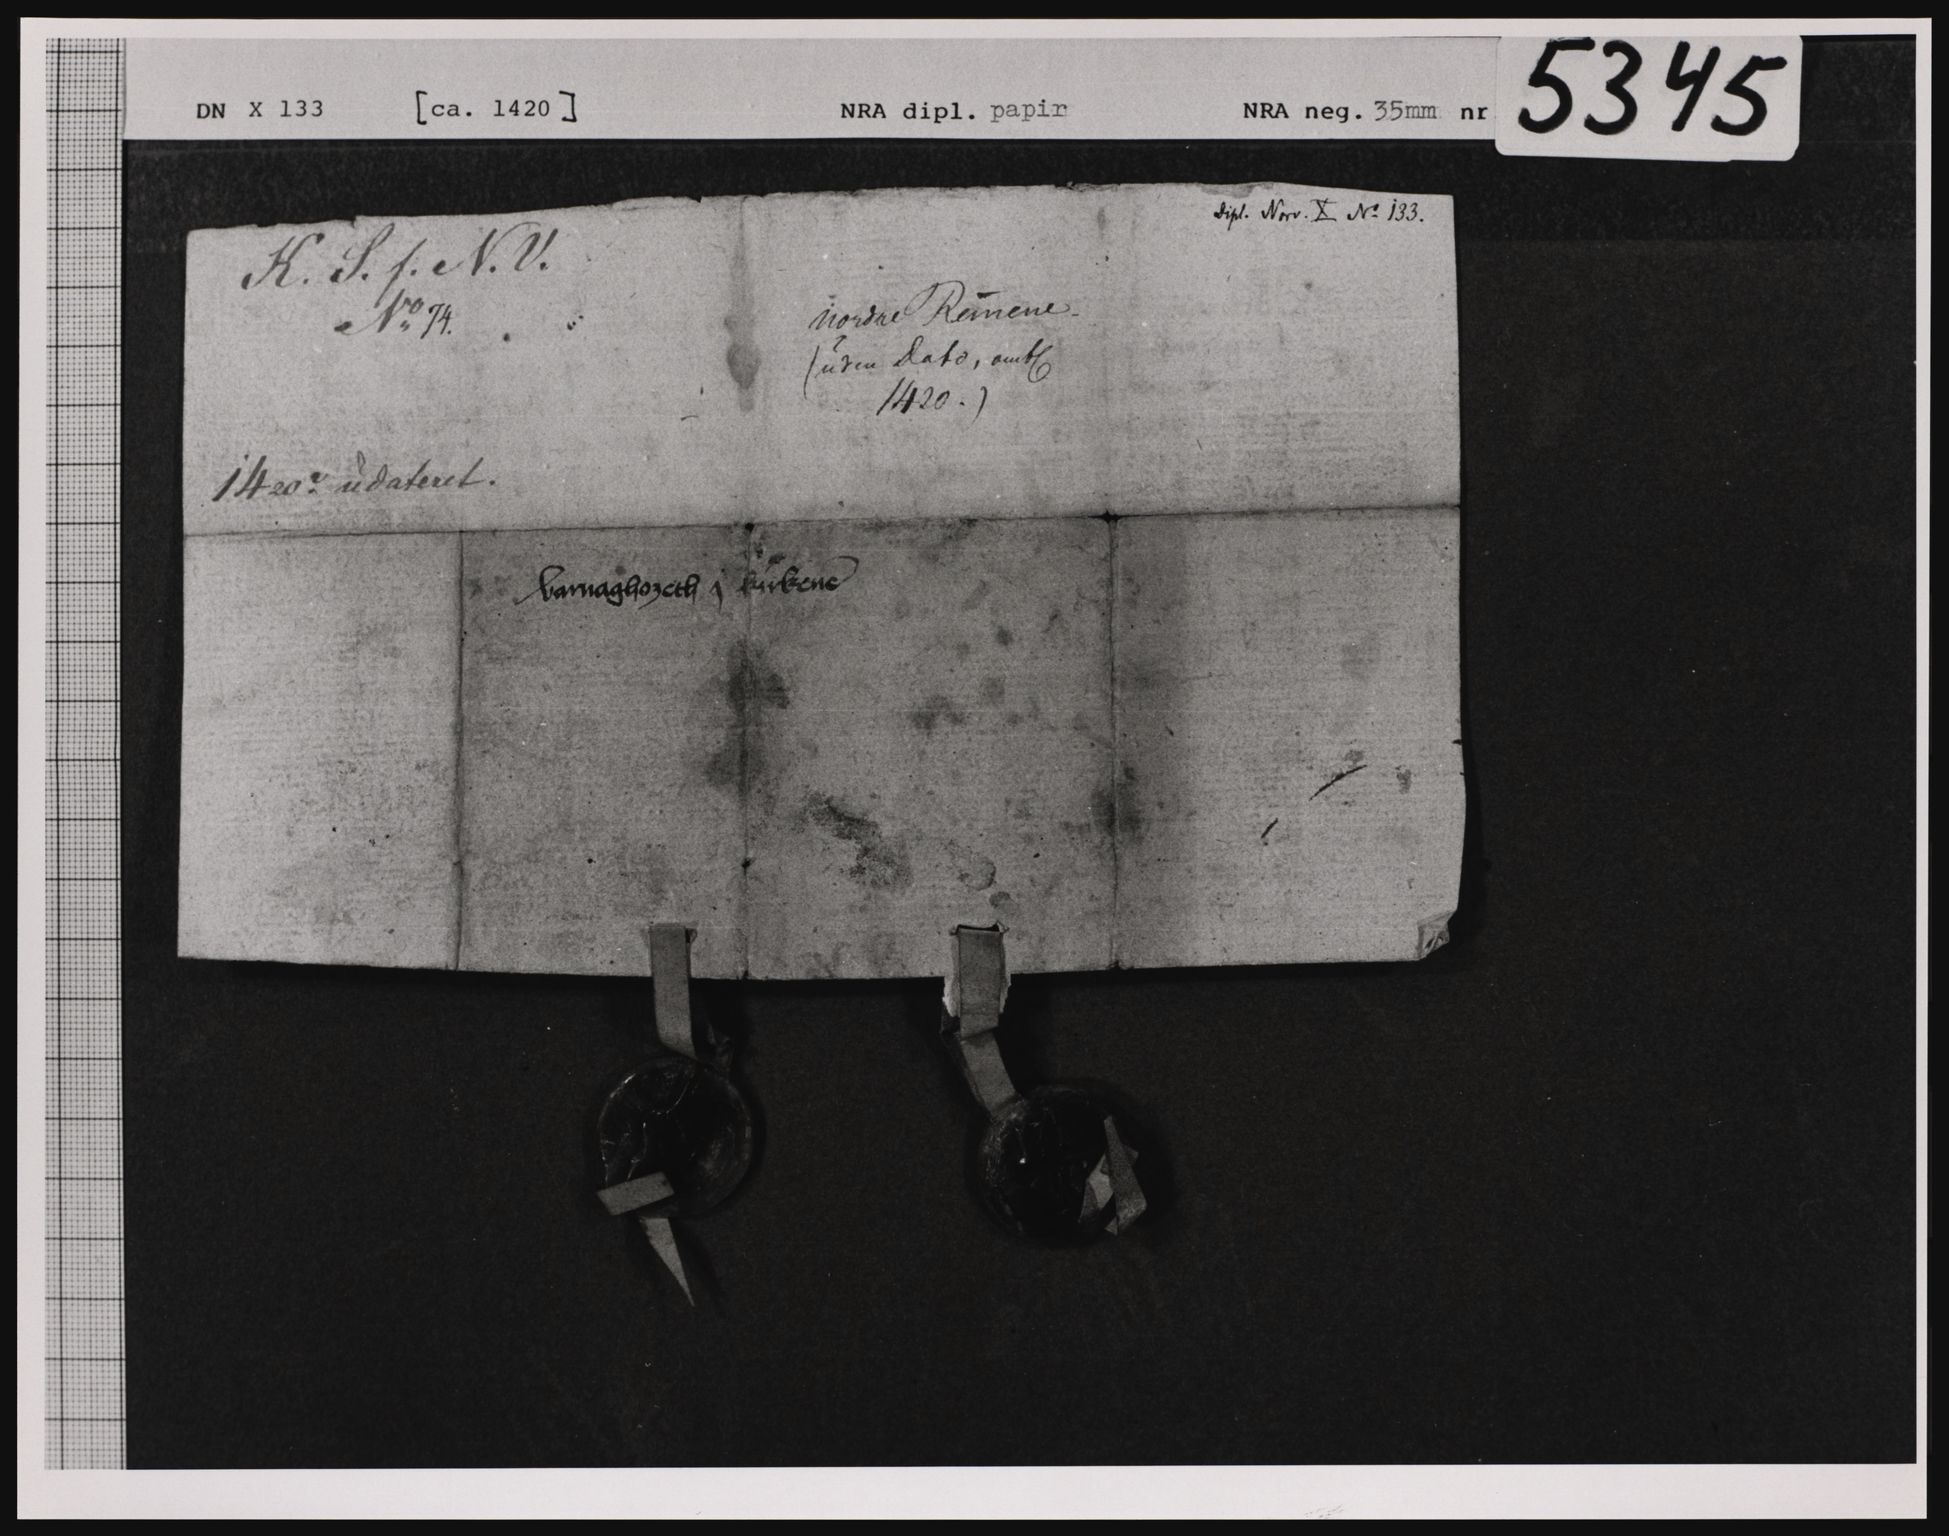 DN X 133 [ca. 1420] NRA dipl. papir NRA neg. 35mm nr 5345
Dipl. Norv. X No 133.
K. S. f. N. V.
No 74.
Nordre Remene
(uden Dato, omtr
1420.)
1420? udateret.
barnaghozeth j